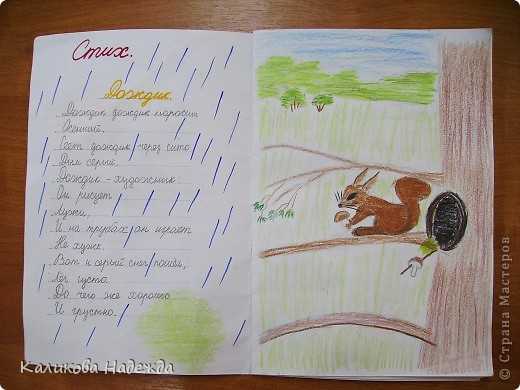 Стих.
Дождик.
Дождик дождик моросит
Осенний.
Сеет дождик через сито
Дым серый.
Дождик - художник:
Он рисует
Лужи,
И на трубах он играет
Не хуже.
Вот и серый снег пошёл,
Лёг густо.
До чего же хорошо
И грустно.
Каликова Надежда
© Страна Мастеров